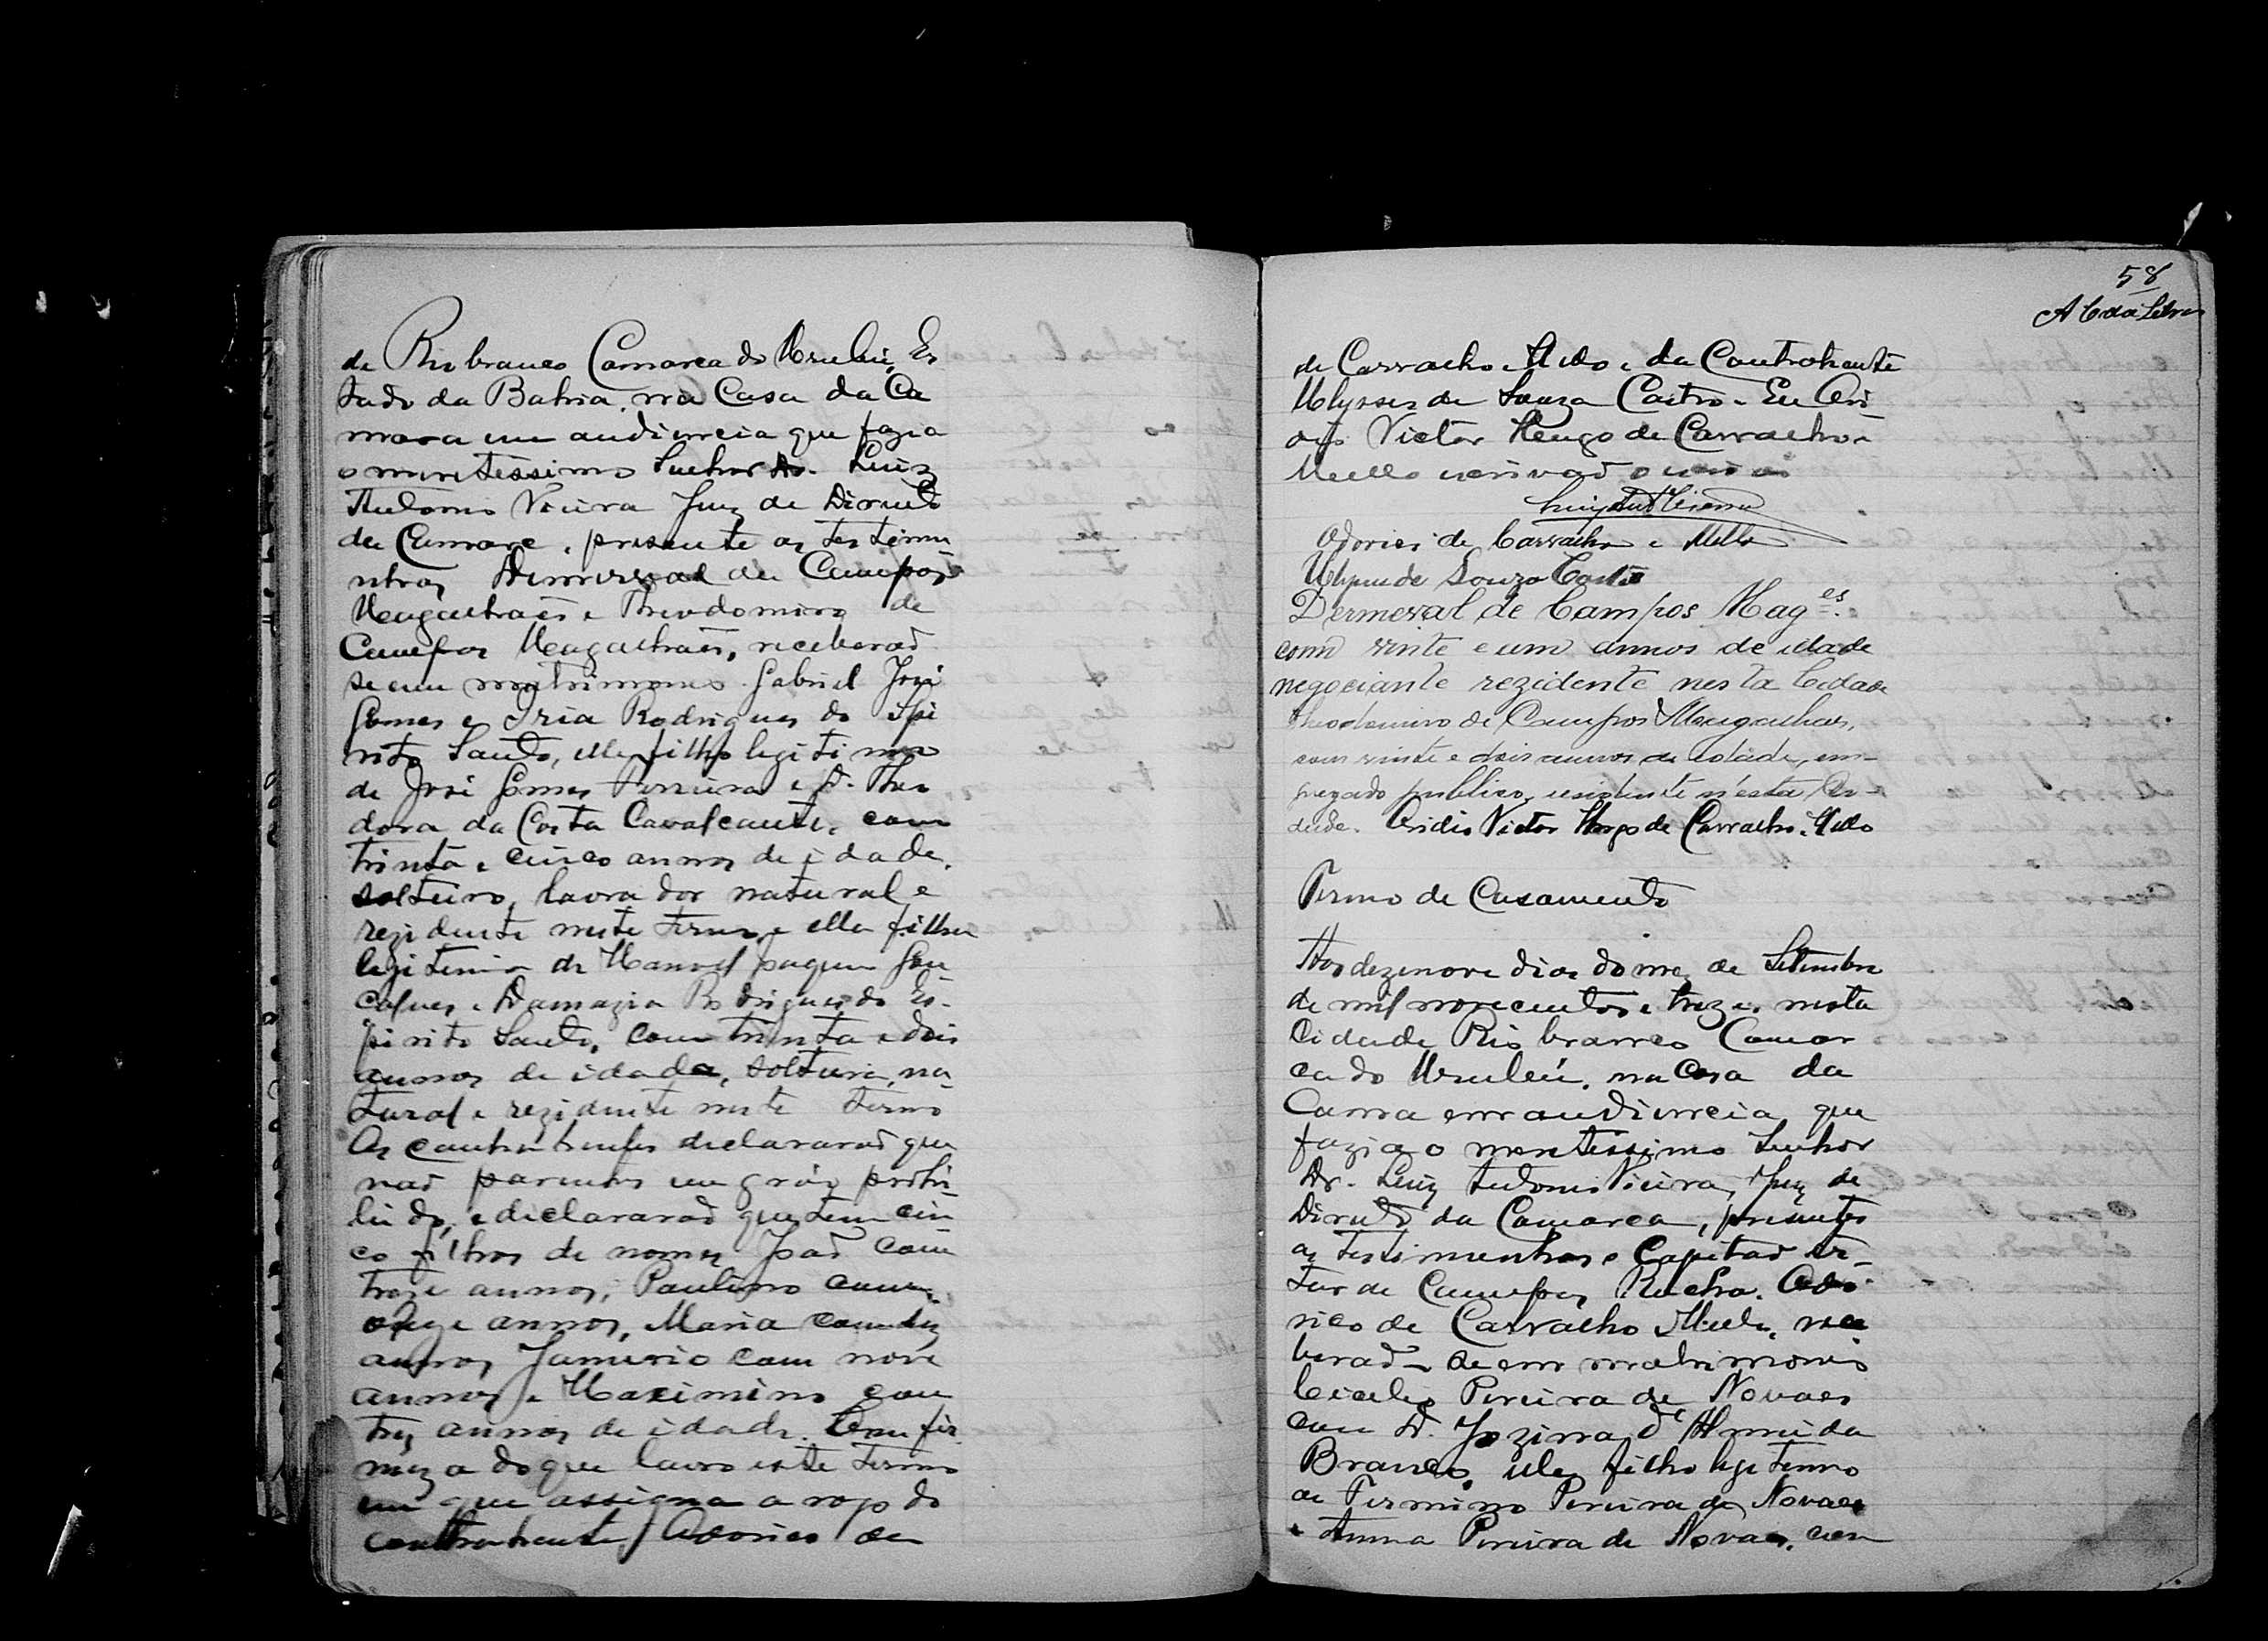 de Rio branco Comarca do Urubú, Es
tado da Bahia, na Casa da Ca
mara em audiencia que fazia
o meretissimo Senhor Dr. Luiz
Antonio Vieira Juiz de Direito
da Comarc, presente as testemu
nhas Dermeval de Campos
Magalhães e Theodomiro de
Campos Magalhães, receberaõ
se em matrimonio Gabriel José
Gomes e Iria Rodrigues do Espi
rito Santo, elle filho legitimo
de José Gomes Ferreira e D. Theo
dora da Costa Cavalcante, com
trinta e cinco annos de idade,
solteiro, lavrador natural e
rezidente neste termo e ella filha
legitima de Manoel Joaquim Gon
calves e Damazia Rodrigues do Es-
pirito Santo, com trinta e dois
annos de idade, solteira, na
tural e rezidente neste termo
Os contrahentes declararaõ que
naõ parentes em gráo prohi
bido, e declararaõ que tem cin
co filhos de nomes Joaõ com
treze annos, Paulino com
onze annos, Maria com dez
annos, Januario com nove
annos e Maximino com
trez annos de idade. Em fir
meza do que lavro este termo
em que assigna a rogo do
contrahente, Odorico de
58
de Carvalho e Mello e da Contrahente
Ulysses de Souza Castro. Eu Ovi
dio Victor Hugo de Carvalho e
Mello escrivaõ o escrevi
Luiz Antº Vieira
Odorico de Carvalho e Mello
Ulysses de Souza Castro
Dermeval de Campos Mag.es
com vinte e um annos de idade
negociante rezidente nesta Cidade
Theodomiro de Campos Magalhães,
com vinte e dois annos de idade, em-
pregado publico, residente n'esta Ci-
dade. Ovidio Victor Hugo de Carvalho e Mello
Termo de Casamento
Aos dezenove dias do mez de Setembro
de mil novecentos e treze, nesta
Cidade de Rio branco Comar
ca do Urubú, na Casa da
Camara em audiencia que
fazia o meretissimo Senhor
Dr. Luiz Antonio Vieira, Juiz de
Direito da Comarca, presentes
as testimunhas o Capitaõ Ar
tur de Campos Rocha. Odo
rico de Carvalho e Mello, rece
beraõ-se em matrimonio
Pereira de Novaes
com D. Jozina d'Almeida
Branco, elle filho legitimo
de Firmino Pereira de Novaes
e Anna Pereira de Novaes, com